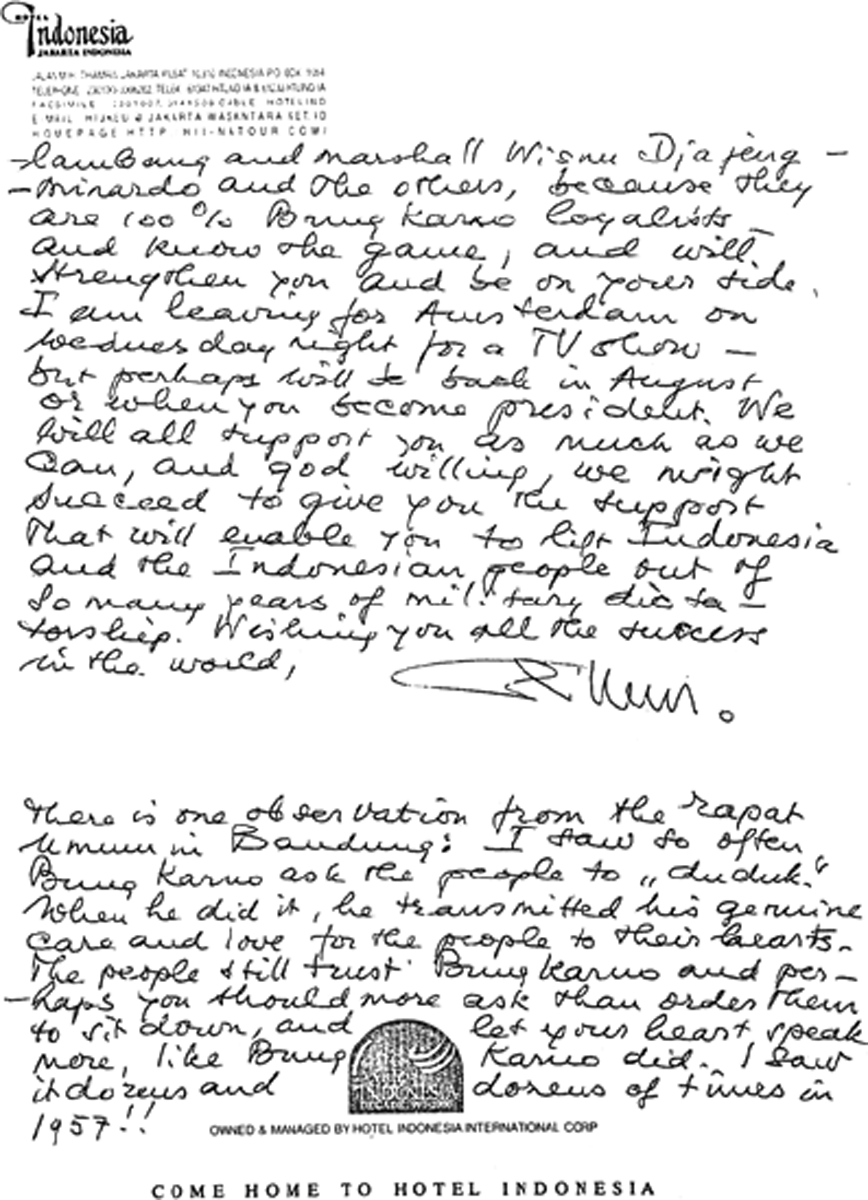 HOTEL
Indonesia
JAKARTA INDONESIA
FACSIMILE HOTELIND
E-MAIL @ JAKARTA WASANTARA NET.ID
HOMEPAGE HTTP.
-lambang and Marshall Wisnu Djajeng -
-Minardo and the others, because they
are 100% Bung Karno loyalists -
and know the game, and will
strengthen you and be on your side.
I am leaving for Amsterdam on
Wednesday night for a TV show -
but perhaps will be back in August
or when you become president. We
will all support you as much as we
can, and god willing, we might
succeed to give you the support
that will enable you to lift Indonesia
and the Indonesian people out of
so many years of military dicta-
torship. Wishing you all the success
in the world,
There is one observation from the rapat
umum in Bandung: I saw so often
Bung Karno ask the people to „duduk.“
When he did it, he transmitted his genuine
care and love for the people to their hearts.
The people still trust Bung Karno and per-
-haps you should more ask than order them
to sit down, and let your heart speak
more, like Bung Karno did. I saw
it dozens and dozens of times in
1957!!
OWNED & MANAGED BY HOTEL INDONESIA INTERNATIONAL CORP
COME HOME TO HOTEL INDONESIA